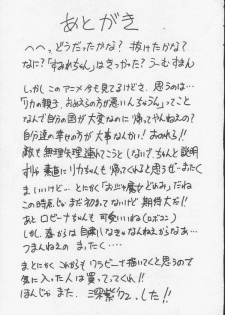 あとがき
へへ、どうだったかな？ 抜けたかな？
なに？「すみれちゃん」はきつかった？うーむすまん
しかしこのアニメ今も見てるけどさ、思うのは…
「リカの親子、おめえらの方が悪いんちゃうん」ってこと
なんで自分の国が大変なのに帰ってやんねえの？
自分達の幸せの方が大事なんかい！おのれら!!
敵も無理矢理連れてこうとしないで、ちゃんと説明
すりゃ素直にリカちゃんも帰ってくれると思うぜ…まったく
ましいけど… とにかく「おジャ魔女どれみ」だね
この時点じゃまだ初まってないけど期待大だ!!
あとロビーナちゃんも可愛いいね（ロボコン）
しかし、春からは自粛しなきゃなんねえからなあ…
つまんねえの まったく・・・・
まとにかくこれからもワラビーで描いてくと思うので
気に入った人は買ってってくれ!!
ほんじゃまた、深紫でした!!